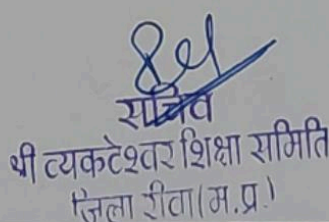 सचिव
श्री व्यकटेश्वर शिक्षा समिति
जिला रीवा (म.प्र.)